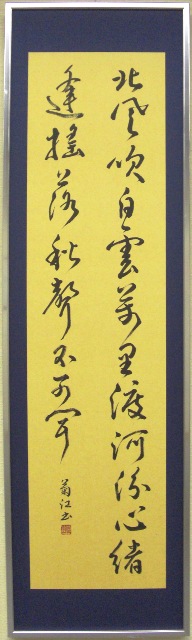 北風吹白雲萬里渡河汾心緒
逢搖落秋聲不可聞
菊江書